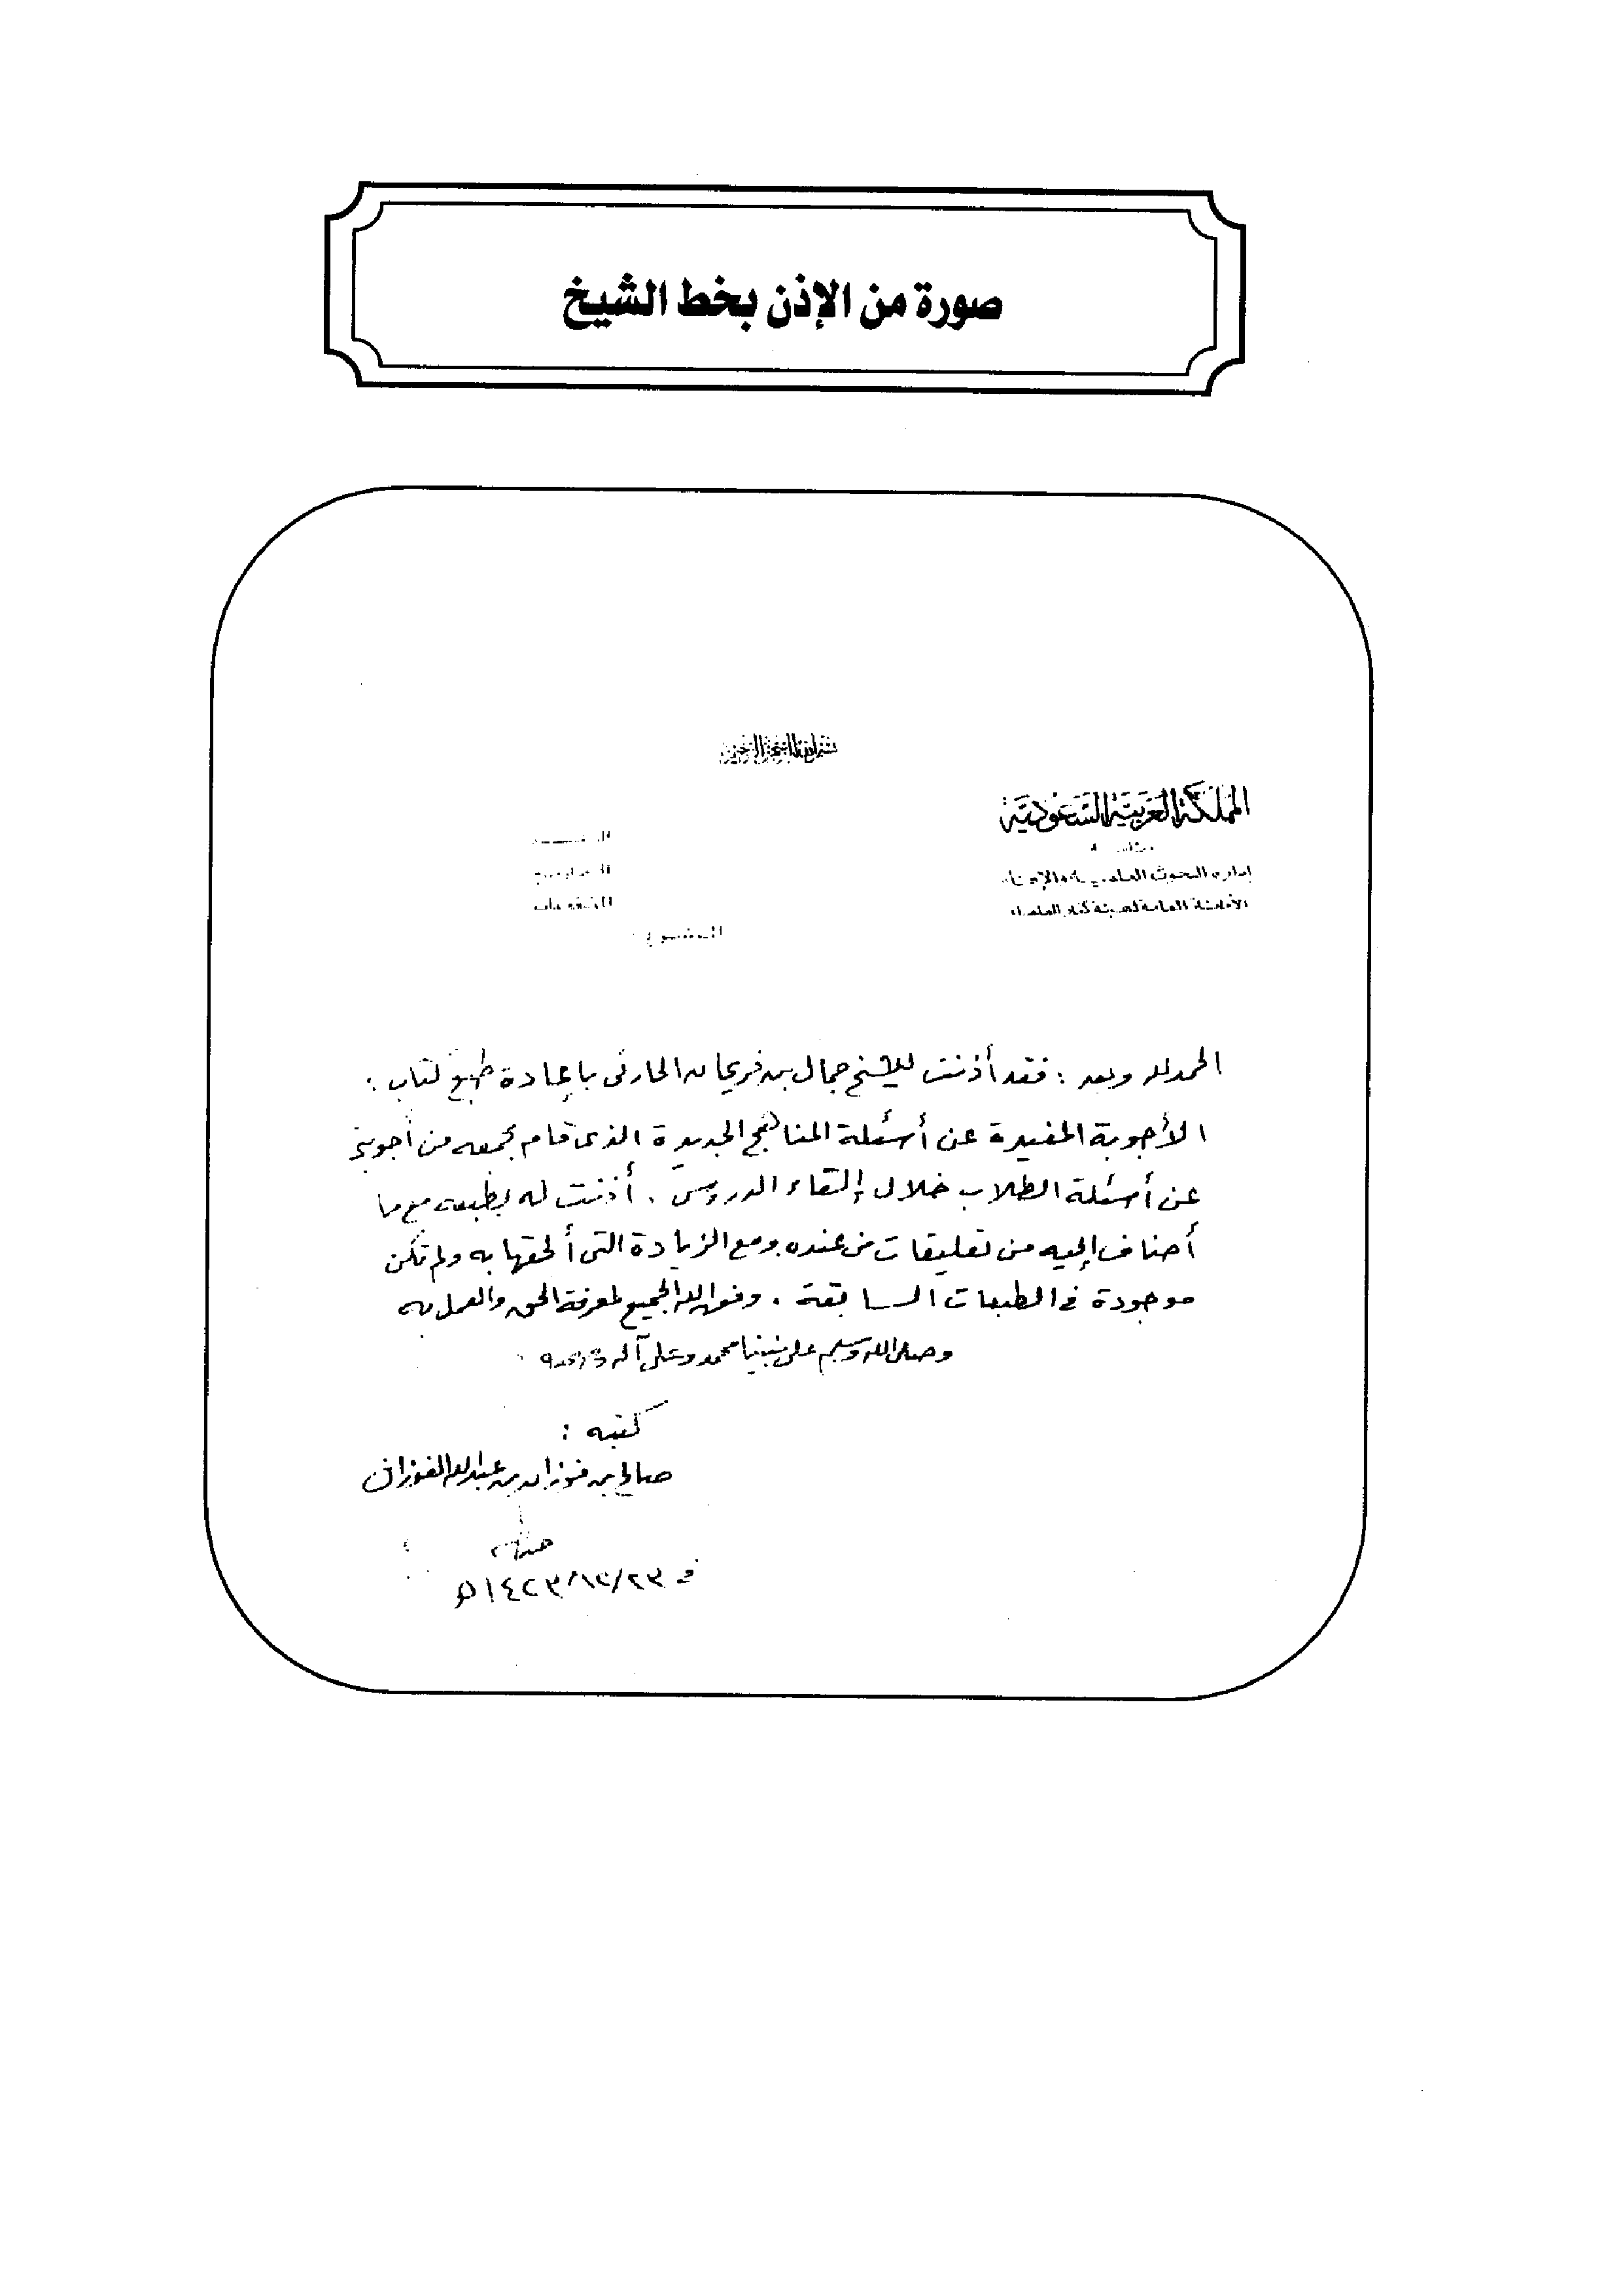 صورة من الإذن بخط الشيخ
بسم الله الرحمن الرحيم
المملكة العربية السعودية
إدارة البحوث العلمية والإفتاء
الأمانة العامة لهيئة كبار العلماء
الحمد لله وبعد : فقد أذنت للشيخ جمال بن فريحان الحارثي بإعادة طبع كتاب :
الأجوبة المفيدة عن أسئلة المناهج الجديدة الذي قام بجمعه من أجوبتي
عن أسئلة الطلاب خلال إلقاء الدروس . أذنت له بطبعه مع ما
أضاف إليه من تعليقات من عنده ومع الزيادة التي ألحقها به ولم تكن
موجودة في الطبعات السابقة . وفق الله الجميع لمعرفة الحق والعمل به
وصلى الله وسلم على نبينا محمد وعلى آله وصحبه
كتبه :
صالح بن فوزان بن عبدالله الفوزان
في ٢٣/١٢/١٤٢٣هـ